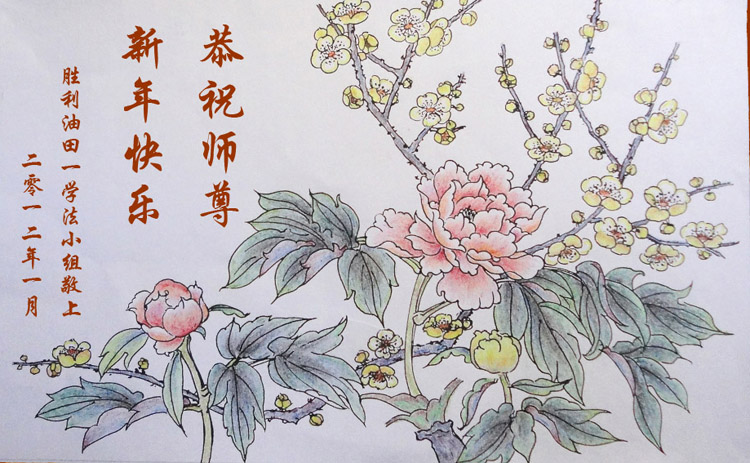 恭祝师尊
新年快乐
胜利油田一学法小组敬上
二零一二年一月